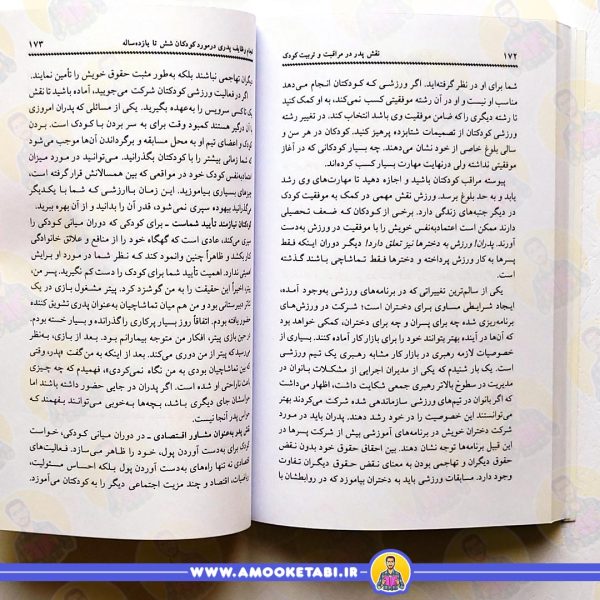 ۱۷۲ نقش پدر در مراقبت و تربیت کودک
شما برای او در نظر گرفته‌اید. اگر ورزشی که کودکتان انجام می‌دهد
مناسب او نیست و او در آن رشته موفقیتی کسب نمی‌کند، به او کمک کنید
تا رشته دیگری را که ضامن موفقیت وی باشد انتخاب کند. در تغییر رشته
ورزشی کودکتان از تصمیمات شتابزده پرهیز کنید. کودکان در هر سن و
سالی بلوغ خاصی از خود نشان می‌دهند. چه بسیار کودکانی که در آغاز
موفقیتی نداشته ولی درنهایت مهارت بسیار کسب کرده‌اند.
پیوسته مراقب کودکتان باشید و اجازه دهید تا مهارت‌های وی رشد
یابد و به حد بلوغ برسد. ورزش نقش مهمی در کمک به موفقیت کودک
در دیگر جنبه‌های زندگی دارد. برخی از کودکان که ضعف تحصیلی
دارند ممکن است اعتمادبه‌نفس خویش را با موفقیت در ورزش به‌دست
آورند. پدران! ورزش به دخترها نیز تعلق دارد! دیگر دوران اینکه فقط
پسرها به کار ورزش پرداخته و دخترها فقط تماشاچی باشند گذشته
است.
یکی از سالم‌ترین تغییراتی که در برنامه‌های ورزشی به‌وجود آمده،
ایجاد شرایطی مساوی برای دختران است؛ شرکت در ورزش‌های
برنامه‌ریزی شده چه برای پسران و چه برای دختران، کمکی خواهد بود
که آن‌ها در آینده بهتر بتوانند خود را برای بازار کار آماده کنند. بسیاری از
خصوصیات لازمه رهبری در بازار کار مشابه رهبری یک تیم ورزشی
است. یک بار شنیدم که یکی از مدیران اجرایی از مشکلات بانوان در
مدیریت در سطوح بالاتر رهبری جمعی شکایت داشت، اظهار می‌داشت
که اگر بانوان در تیم‌های ورزشی سازماندهی شده شرکت می‌کردند بهتر
می‌توانستند این خصوصیت را در خود رشد دهند. پدران باید در مورد
شرکت دختران خویش در برنامه‌های آموزشی بیش از شرکت پسرها در
این قبیل برنامه‌ها توجه نشان دهند. بین احقاق حقوق خود بدون نقض
حقوق دیگران و تهاجمی بودن به معنای نقض حقوق دیگران تفاوت
وجود دارد. مسابقات ورزشی باید به دختران بیاموزد که در روابطشان با
انجام وظایف پدری درمورد کودکان شش تا یازده‌ساله ۱۷۳
دیگران تهاجمی نباشند بلکه به‌طور مثبت حقوق خویش را تأمین نمایند.
اگر در فعالیت ورزشی کودکتان شرکت می‌جویید، آماده باشید تا
یک تاکسی سرویس را به‌عهده بگیرید. یکی از مسائلی که پدران امروزی
با آن درگیر هستند کمبود وقت برای به سر بردن با کودک است. بردن
کودک و اعضای تیم او به محل مسابقه و برگرداندن آن‌ها موجب می‌شود
که شما زمانی بیشتر را با کودکتان بگذرانید. می‌توانید در مورد میزان
اعتمادبه‌نفس کودک خود در مواقعی که بین همسالانش قرار گرفته است،
چیزهای بسیاری بیاموزید. این زمان باارزشی که شما با یکدیگر
می‌گذرانید بیهوده سپری نمی‌شود، قدر آن را بدانید و از آن بهره ببرید.
کودکتان نیازمند تأیید شماست ـ برای کودکی که دوران میانی کودکی را
سپری می‌کند، عادی است که گهگاه خود را از منافع و علائق خانوادگی
کنار بکشد و ظاهراً چنین وانمود کند که نظر شما در مورد او برایش
اهمیتی ندارد. اهمیت تأیید شما برای کودک را دست کم نگیرید. پسر من،
پیتر، اخیراً این حقیقت را به من گوشزد کرد. پیتر مشغول بازی در یک
تئاتر دبیرستانی بود و من هم میان تماشاچیان به‌عنوان پدری تشویق کننده
حضور یافته بودم. اتفاقاً روز بسیار پرکاری را گذرانده و بسیار خسته بودم.
در حین بازی پیتر، افکار من متوجه بیمارانم بود. بعد از بازی، به‌نظر
می‌رسید که پیتر از من دوری می‌کند. بعد از اینکه به من گفت «پدر، وقتی
در میان تماشاچیان بودی به من نگاه نمی‌کردی»، فهمیدم که چه چیزی
باعث ناراحتی او شده است. اگر پدران در جایی حضور داشته باشند اما
حواسشان جای دیگری باشد، بچه‌ها به‌خوبی می‌توانند بفهمند که
حواس پدر آنجا نیست.
نقش پدر به‌عنوان مشاور اقتصادی ـ در دوران میانی کودکی، خواست
کودک برای به‌دست آوردن پول، خود را ظاهر می‌سازد. فعالیت‌های
اقتصادی نه تنها راه‌های به‌دست آوردن پول بلکه احساس مسئولیت،
ریاضیات، اقتصاد و چند مزیت اجتماعی دیگر را به کودکتان می‌آموزد.
WWW.AMOOKETABI.IR